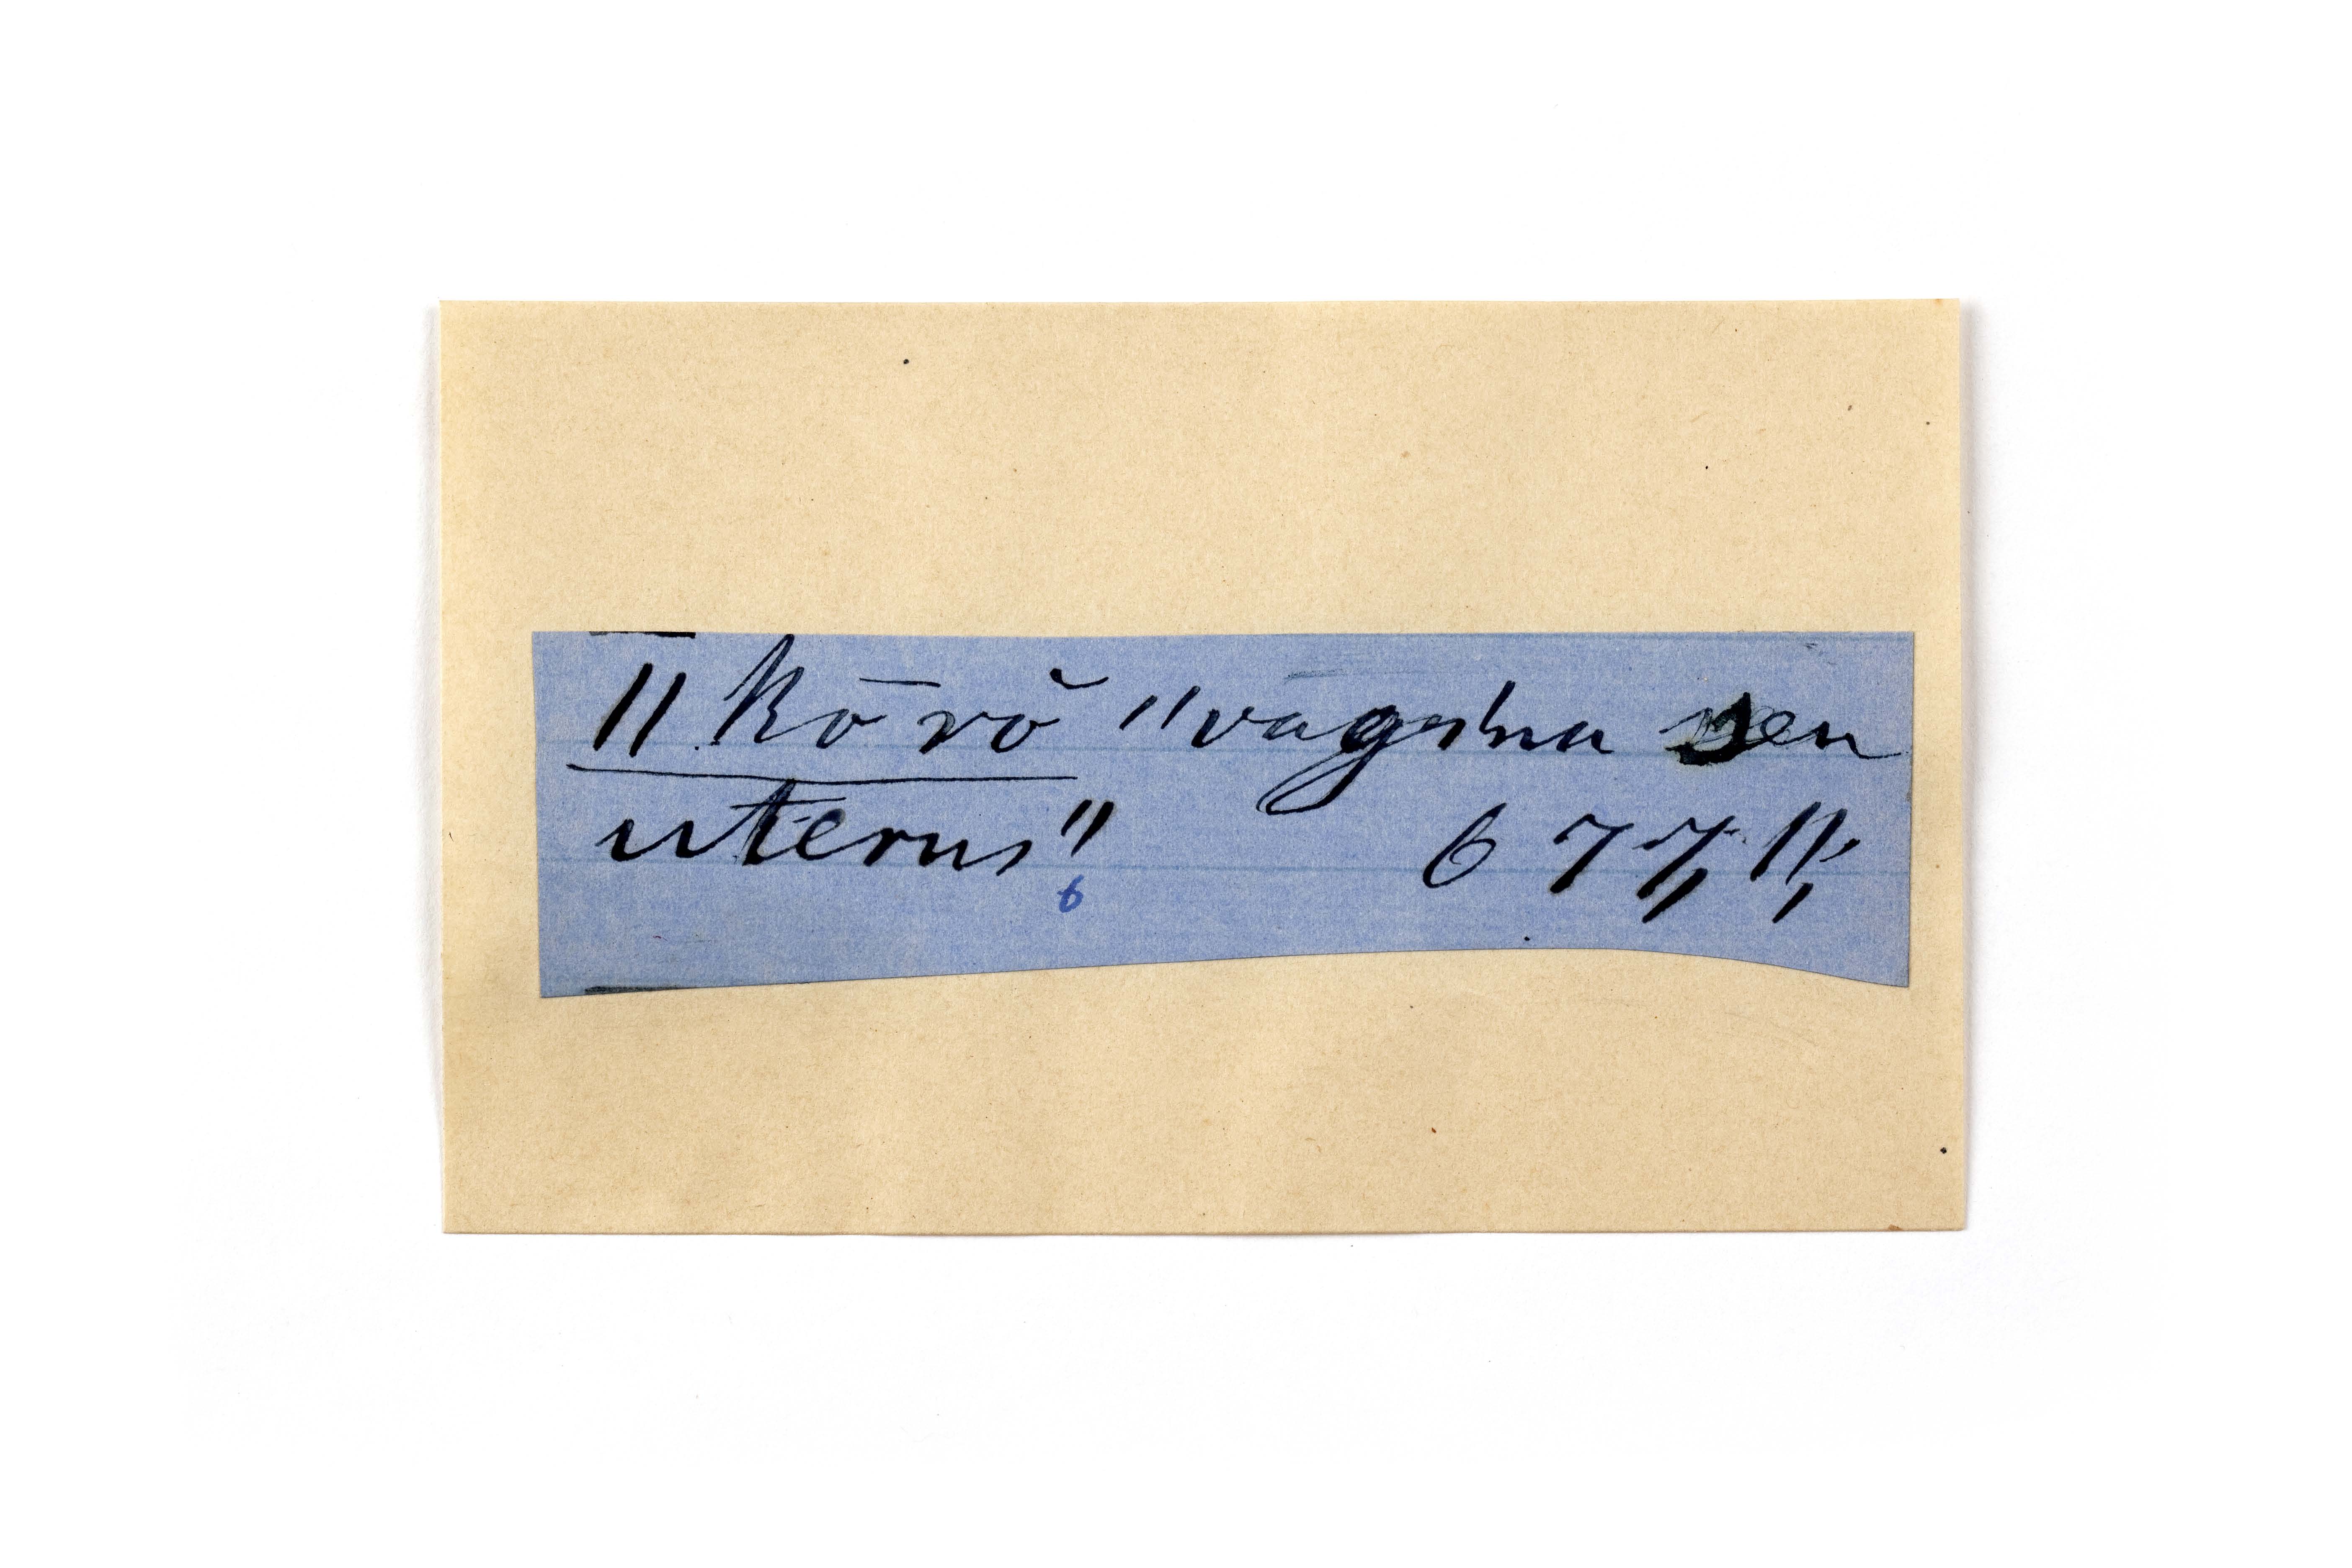 ǁkō rŏ "vagina seu
uterus" 677
6